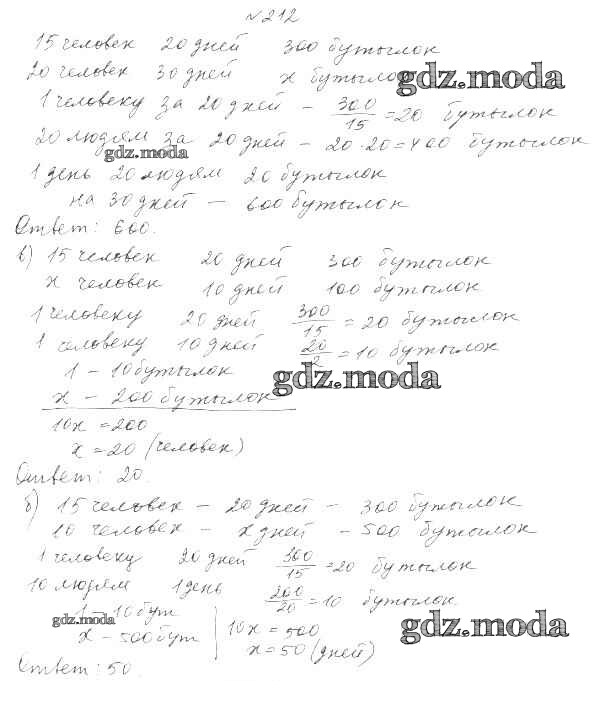 № 212
15 человек 20 дней 300 бутылок
20 человек 30 дней x бутылок
gdz.moda
1 человеку за 20 дней – 300/15 = 20 бутылок
20 людям за 20 дней – 20·20=400 бутылок
gdz.moda
1 день 20 людям 20 бутылок
на 30 дней – 600 бутылок
Ответ: 600.
в) 15 человек 20 дней 300 бутылок
x человек 10 дней 100 бутылок
1 человеку 20 дней 300/15 = 20 бутылок
1 человеку 10 дней 20/2 = 10 бутылок
1 – 10 бутылок
gdz.moda
x – 200 бутылок
10x = 200
x = 20 (человек)
Ответ: 20.
б) 15 человек – 20 дней – 300 бутылок
10 человек – x дней – 500 бутылок
1 человеку 20 дней 300/15 = 20 бутылок
10 людям 1 день 200/20 = 10 бутылок.
1 – 10 бут
gdz.moda
x – 500 бут
10x = 500
x = 50 (дней)
gdz.moda
Ответ: 50.